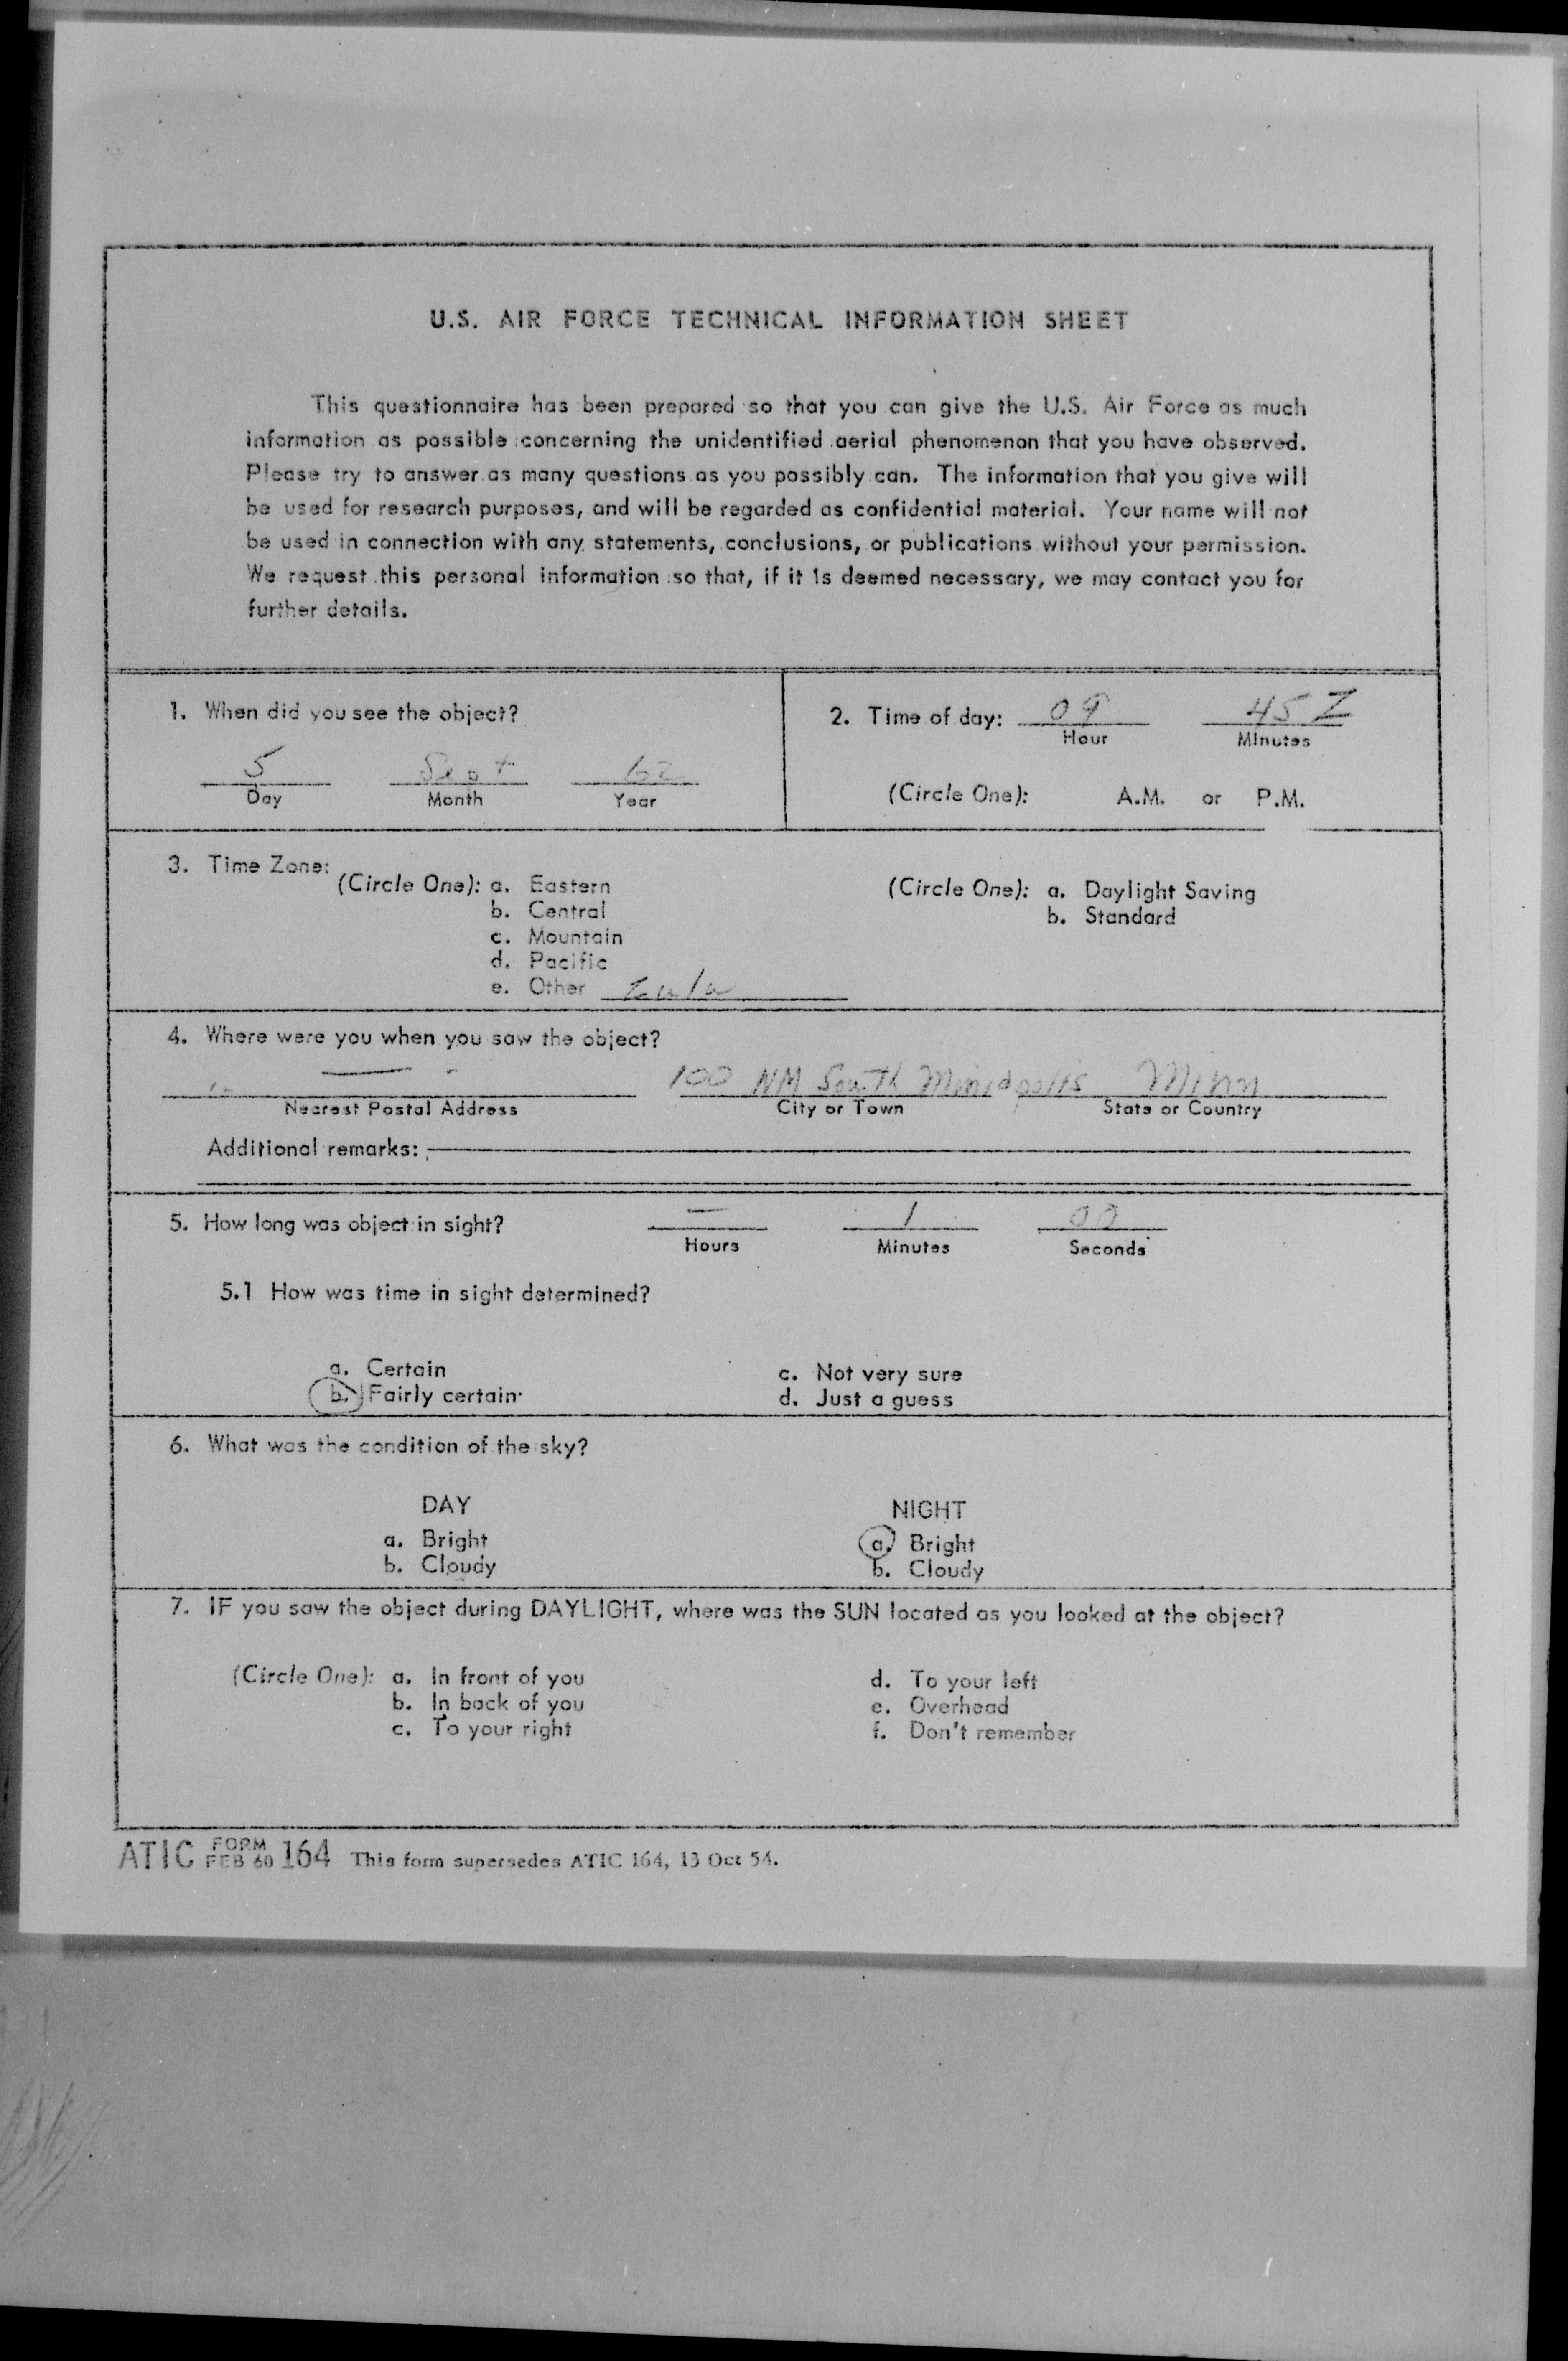 U.S. AIR FORCE TECHNICAL INFORMATION SHEET
This questionnaire has been prepared so that you can give the U.S. Air Force as much
information as possible concerning the unidentified aerial phenomenon that you have observed.
Please try to answer as many questions as you possibly can. The information that you give will
be used for research purposes, and will be regarded as confidential material. Your name will not
be used in connection with any statements, conclusions, or publications without your permission.
We request this personal information so that, if it is deemed necessary, we may contact you for
further details.
1. When did you see the object?
5 Sept 62
Day Month Year
2. Time of day: 09 45 Z
Hour Minutes
(Circle One): A.M. or P.M.
3. Time Zone:
(Circle One): a. Eastern
b. Central
c. Mountain
d. Pacific
e. Other Zulu
(Circle One): a. Daylight Saving
b. Standard
4. Where were you when you saw the object?
100 NM South Minn
Nearest Postal Address City or Town State or Country
Additional remarks:
5. How long was object in sight? — 1 00
Hours Minutes Seconds
5.1 How was time in sight determined?
a. Certain
b. Fairly certain
c. Not very sure
d. Just a guess
6. What was the condition of the sky?
DAY
a. Bright
b. Cloudy
NIGHT
a. Bright
b. Cloudy
7. IF you saw the object during DAYLIGHT, where was the SUN located as you looked at the object?
(Circle One): a. In front of you
b. In back of you
c. To your right
d. To your left
e. Overhead
f. Don't remember
ATIC FORM FEB 60 164 This form supersedes ATIC 164, 13 Oct 54.